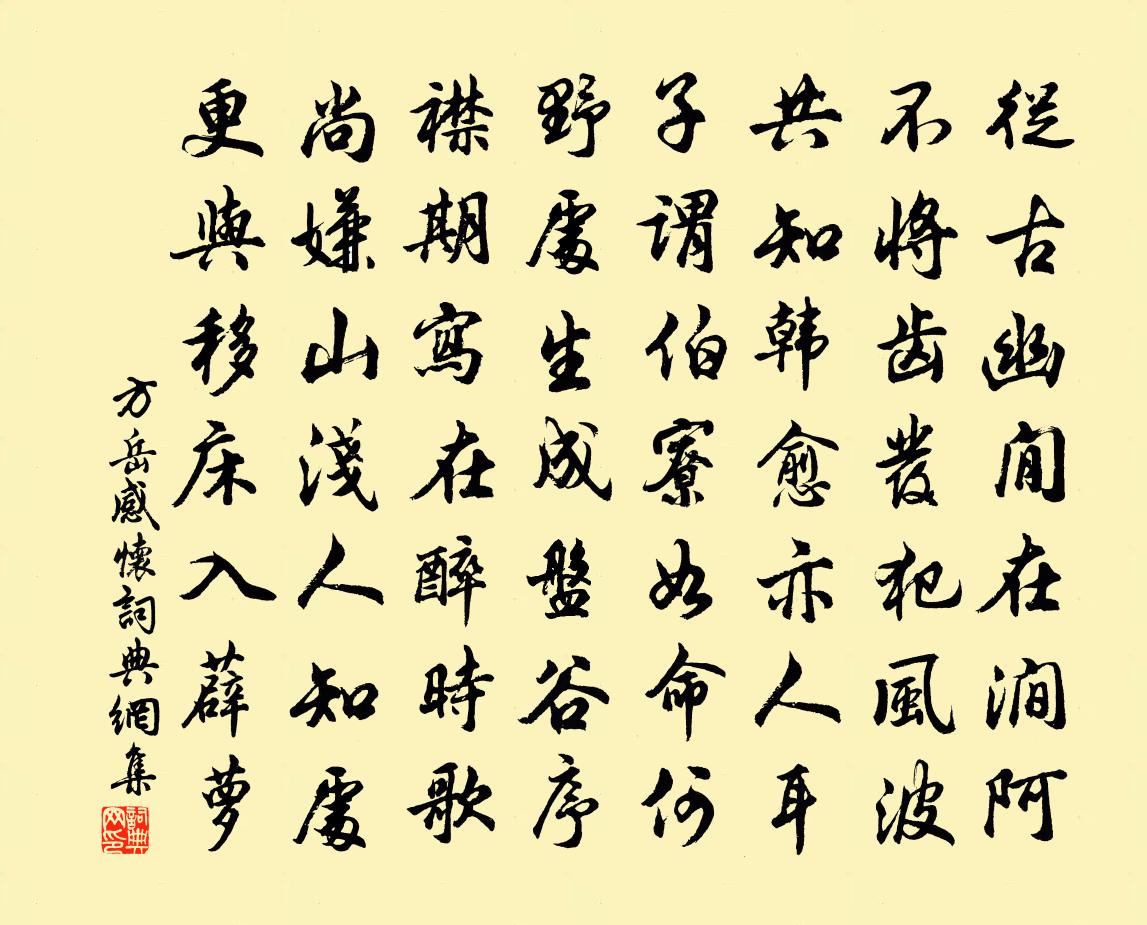 從古幽閒在澗阿
不將齒發犯風波
共知韩愈亦人耳
子謂伯寮如命何
野處生成盤谷序
襟期寫在醉時歌
尚嫌山淺人知處
更與移床入薜萝
方岳感懷詞典網集
詞典网印